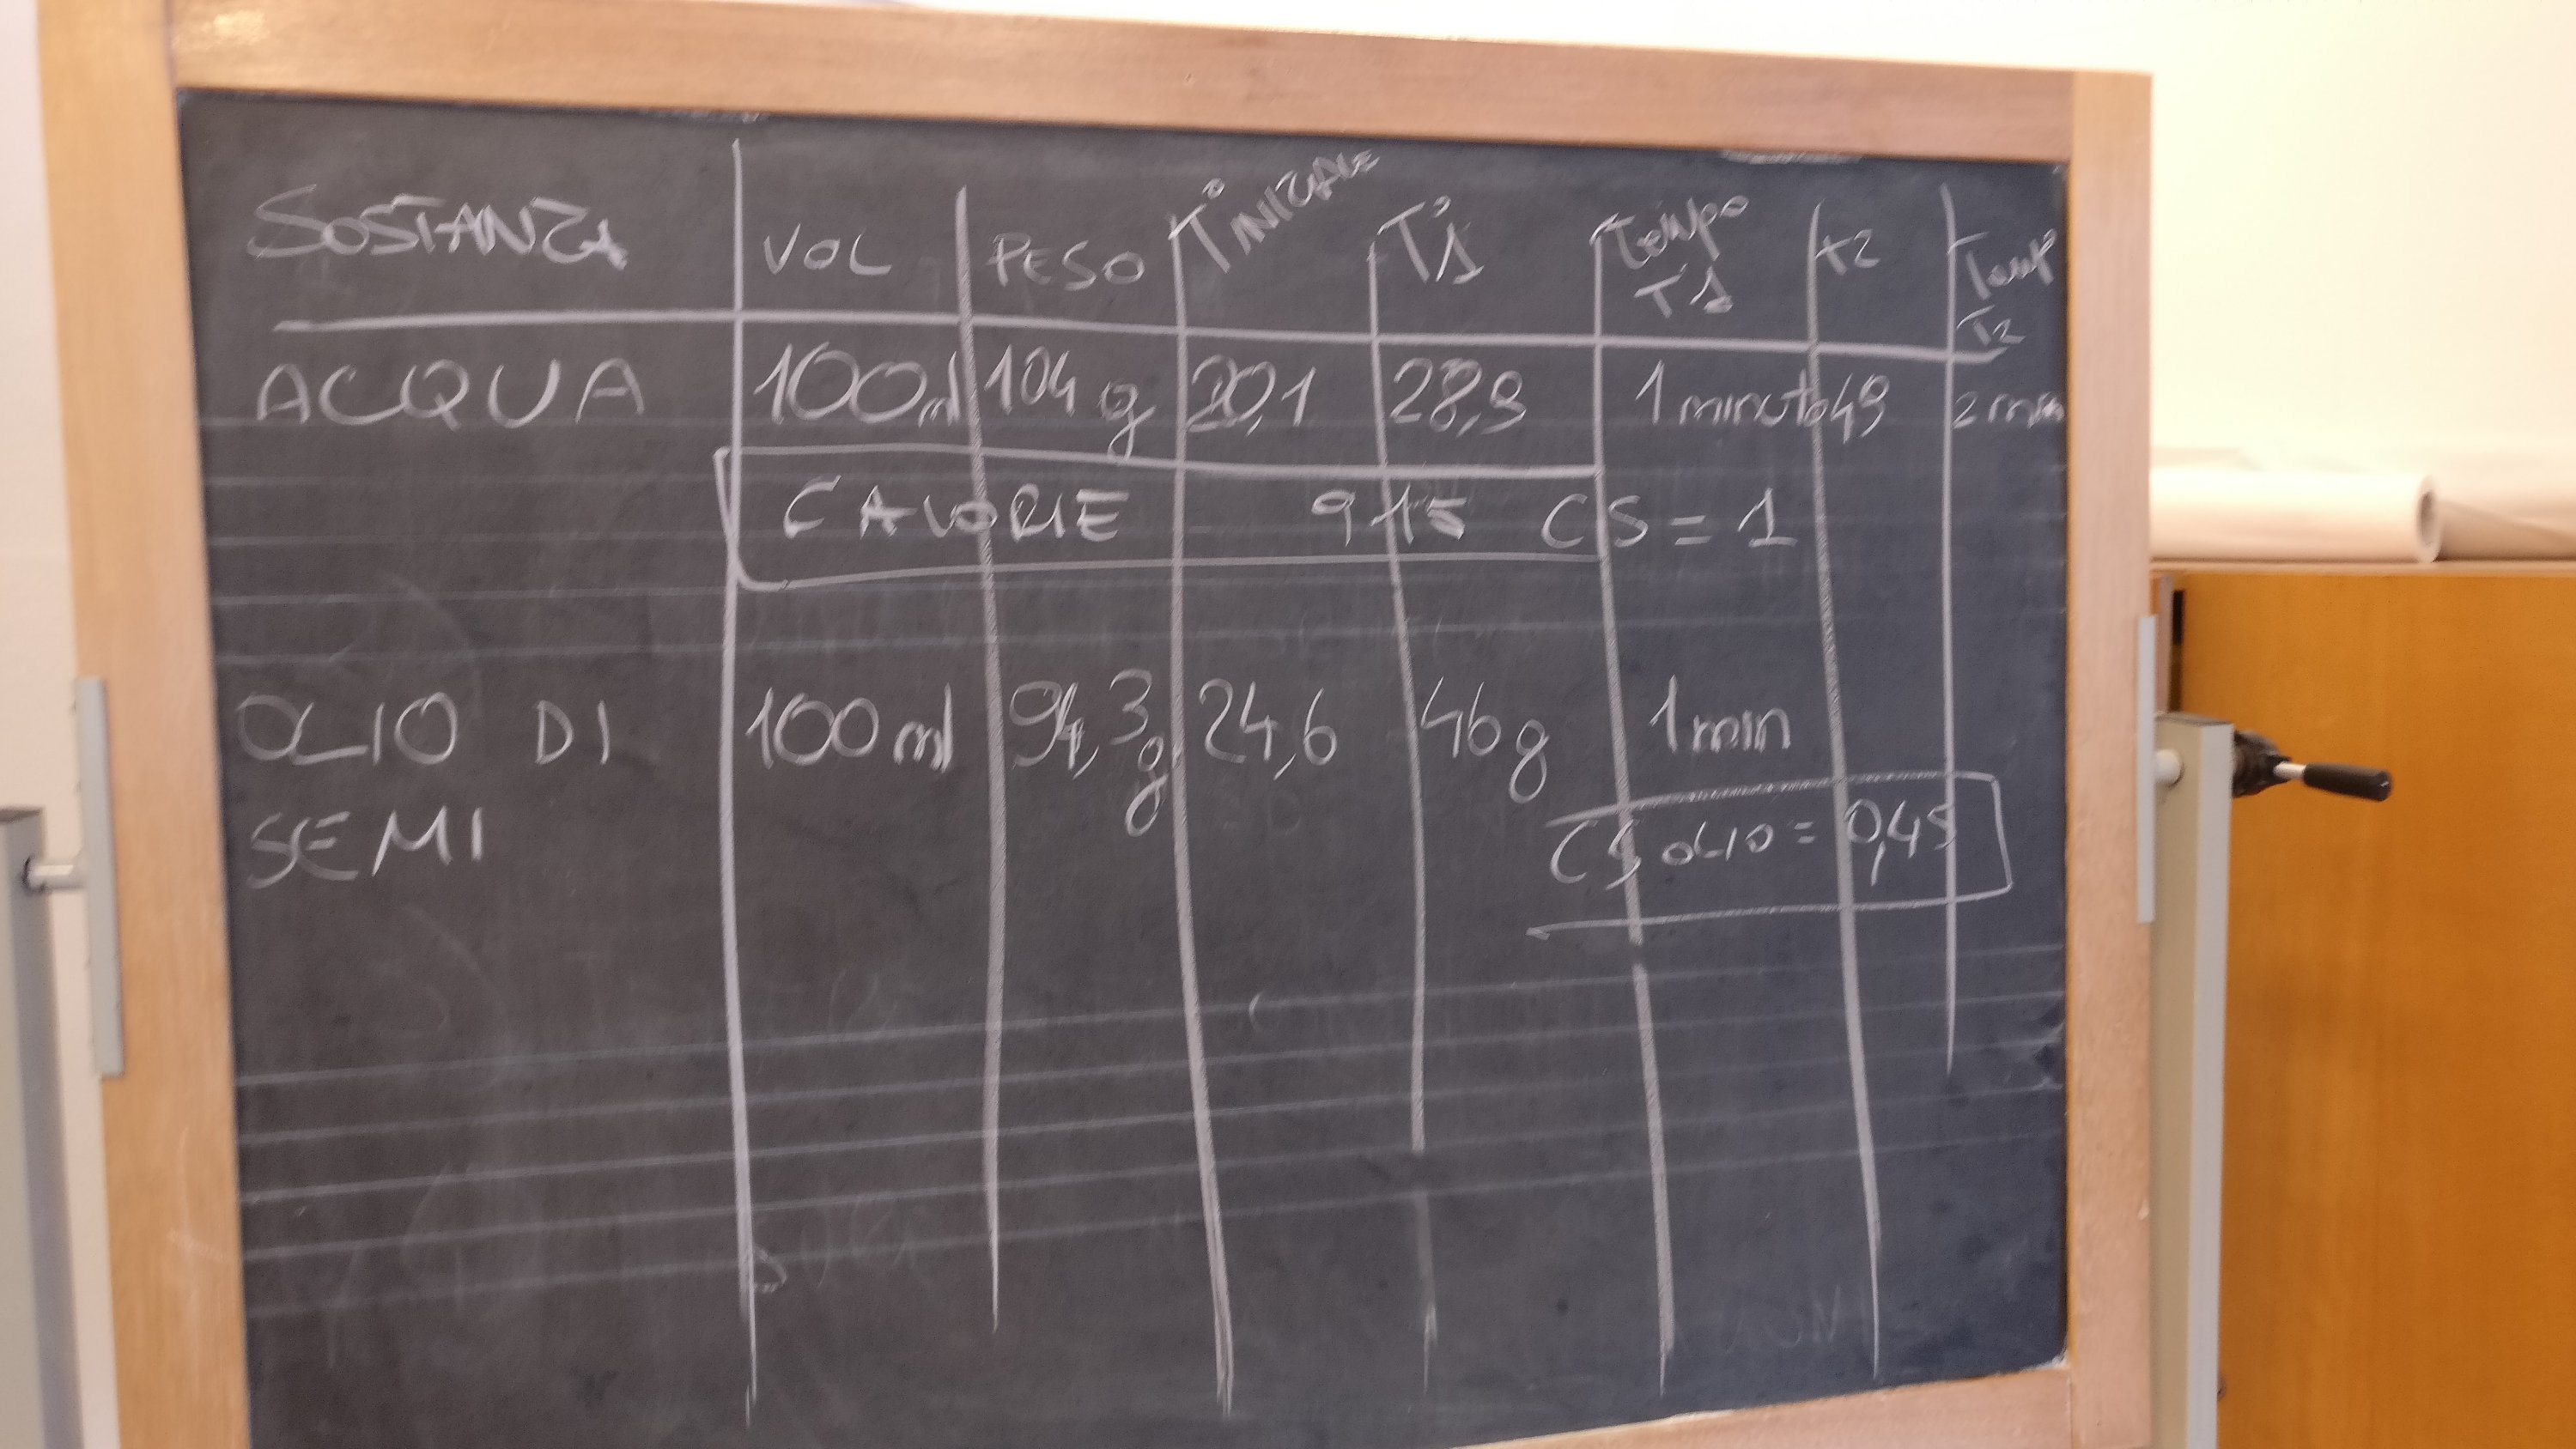 SOSTANZA VOL PESO T° INIZIALE T°1 tempo T1 t2 Temp T2
ACQUA 100ml 104 g 20,1 28,9 1 minuto 49 2 min
CALORIE 915 CS = 1
OLIO DI 100 ml 94,3 g 24,6 46g 1 min
SEMI CS OLIO = 0,45